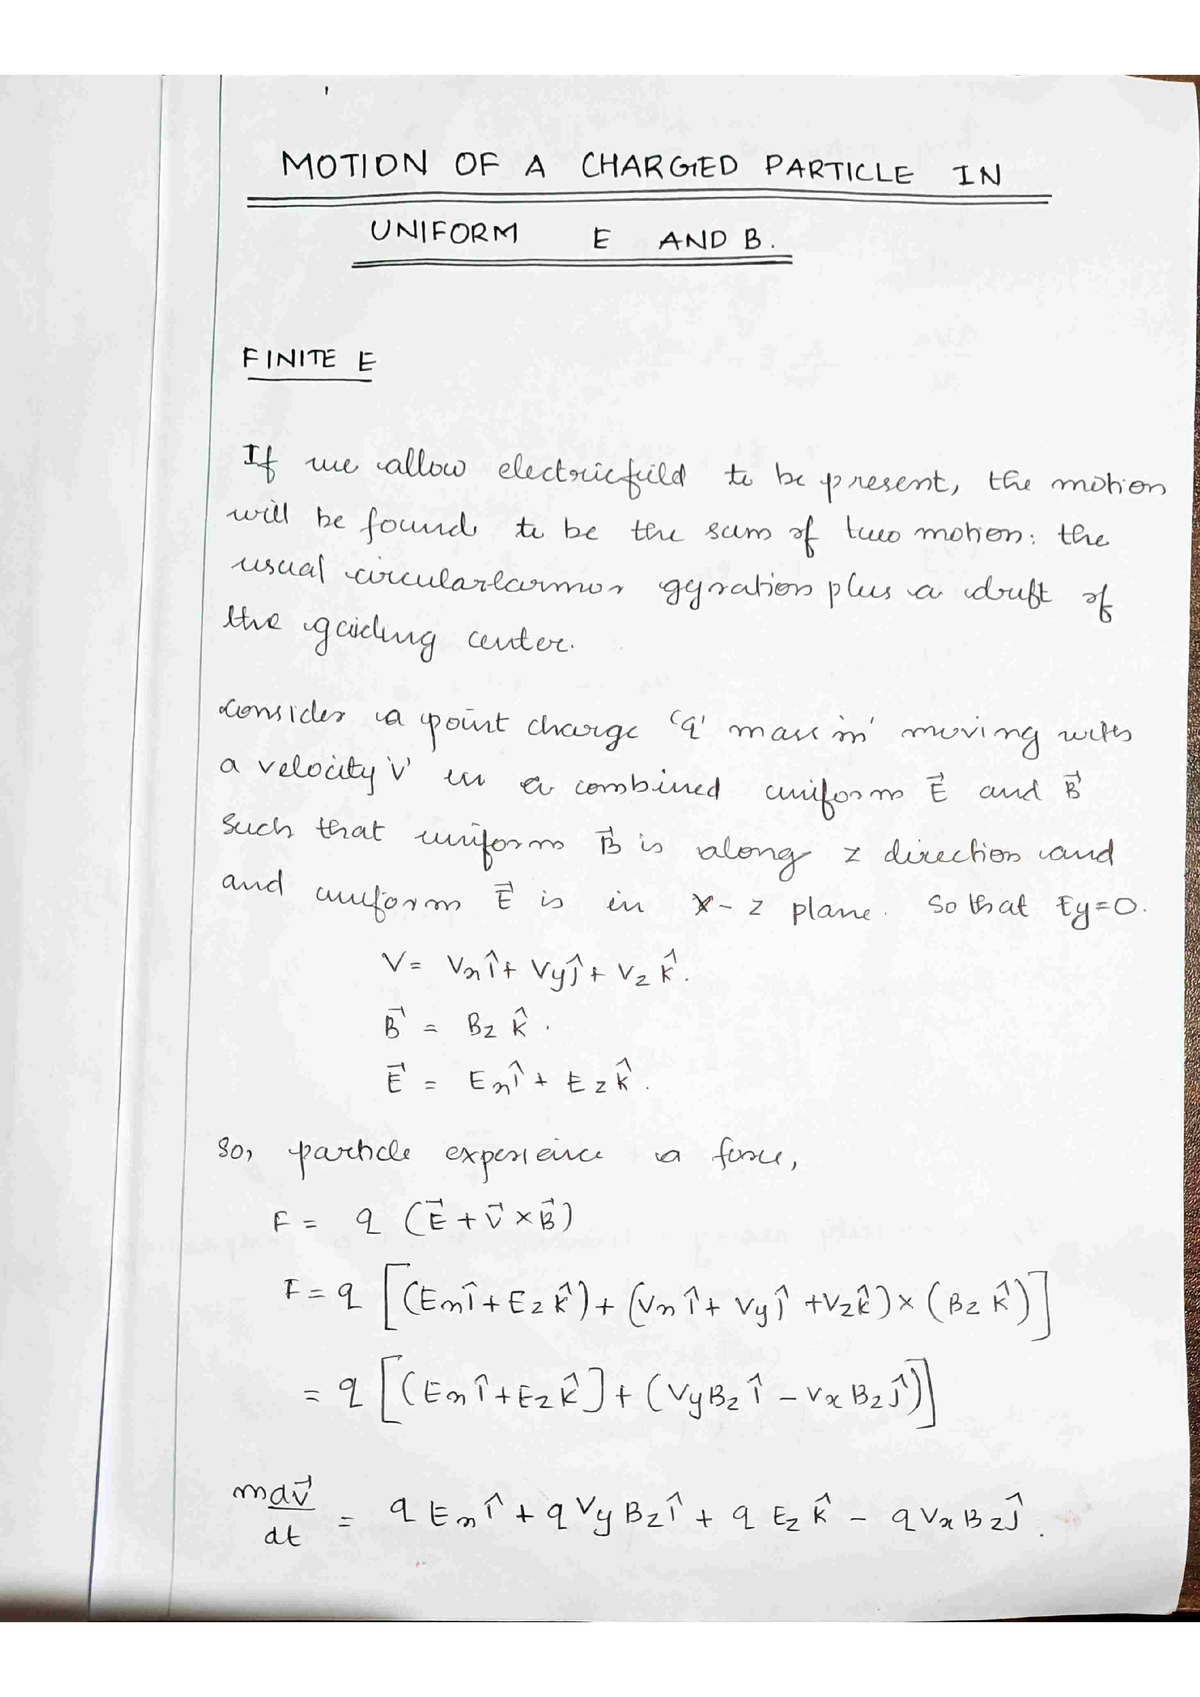 MOTION OF A CHARGED PARTICLE IN
UNIFORM E AND B.
FINITE E
If we allow electricfeild to be present, the motion
will be found to be the sum of two motion: the
usual circularlarmor gyration plus a drift of
the gaiding center.
Consider a point charge 'q' mass 'm' moving with
a velocity 'v' in a combined uniform E⃗ and B⃗
Such that uniform B⃗ is along z direction and
and uniform E⃗ is in X-z plane. So that Ey=0.
V = Vx î + Vy ĵ + Vz k̂.
B⃗ = Bz k̂.
E⃗ = Ex î + Ez k̂.
So, particle experience a force,
F = q (E⃗ + V⃗ × B⃗)
F = q [(Ex î + Ez k̂) + (Vx î + Vy ĵ + Vz k̂) × (Bz k̂)]
= q [(Ex î + Ez k̂] + (Vy Bz î - Vx Bz ĵ)]
mdv⃗/dt = q Ex î + q Vy Bz î + q Ez k̂ - q Vx Bz ĵ.